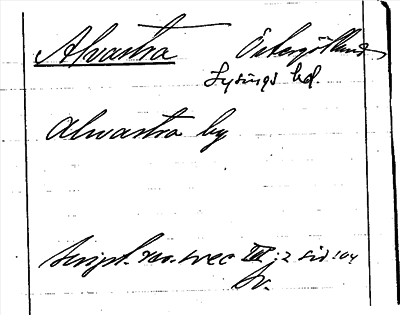 Alvastra Östergötland
Lysings hd.
Alwastra by
Script. rer. svec III: 2 sid. 104
Sv.